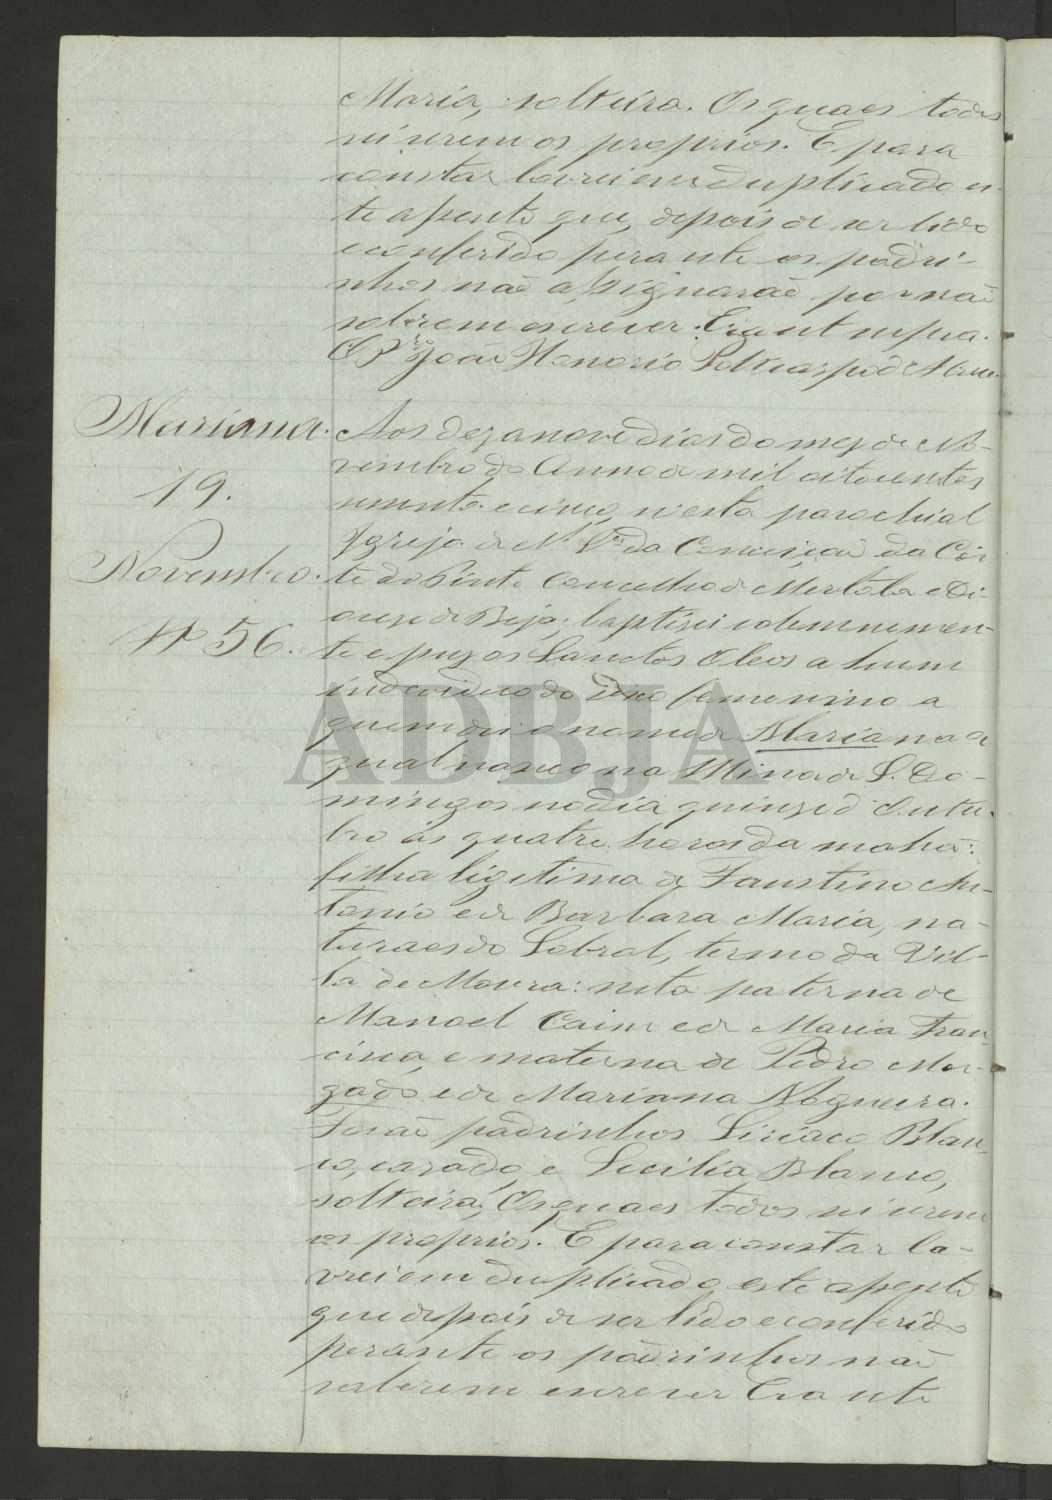 Maria, solteira. Os quaes todos
sei serem os proprios. E para
constar lavrei em duplicado es-
te assento que, depois de ser lido
e conferido perante os padri-
nhos não assignarão por não
saberem escrever. Era ut supra.
O P.ro João Honorio
Marianna.
19.
Novembro.
Nº 56.
Aos dezanove dias do mez de No-
vembro do Anno de mil oitocentos
e cinco, n'esta parochial
Igreja de N. Sra da Conceição da Côr-
te do Pinto Concelho de Mertola e Di-
ocese de Beja, baptizei solemnemen-
te e puz os Sanctos Oleos a hum
individuo do sexo femenino a
quem dei o nome de Mariana a
qual nasceo na Mina de S. Do-
mingos no dia quinze d'Outu-
bro ás quatro horas da mahã:
filha ligitima de Faustino An-
tonio e de Barbara Maria, na-
turaes do Sobral, termo da Vil-
la de Moura: neta paterna de
Manoel Caim e de Maria Fran-
cisca, e materna de Pedro Mor-
gado e de Mariana Nogueira.
Forão padrinhos Siriaco Blan-
co, casado, e Secilia Blanco,
solteira, Os quaes todos sei serem
os proprios. E para constar la-
vrei em duplicado este assento
que depois de ser lido e conferido
perante os padrinhos não
saberem escrever Era ut
ADBJA